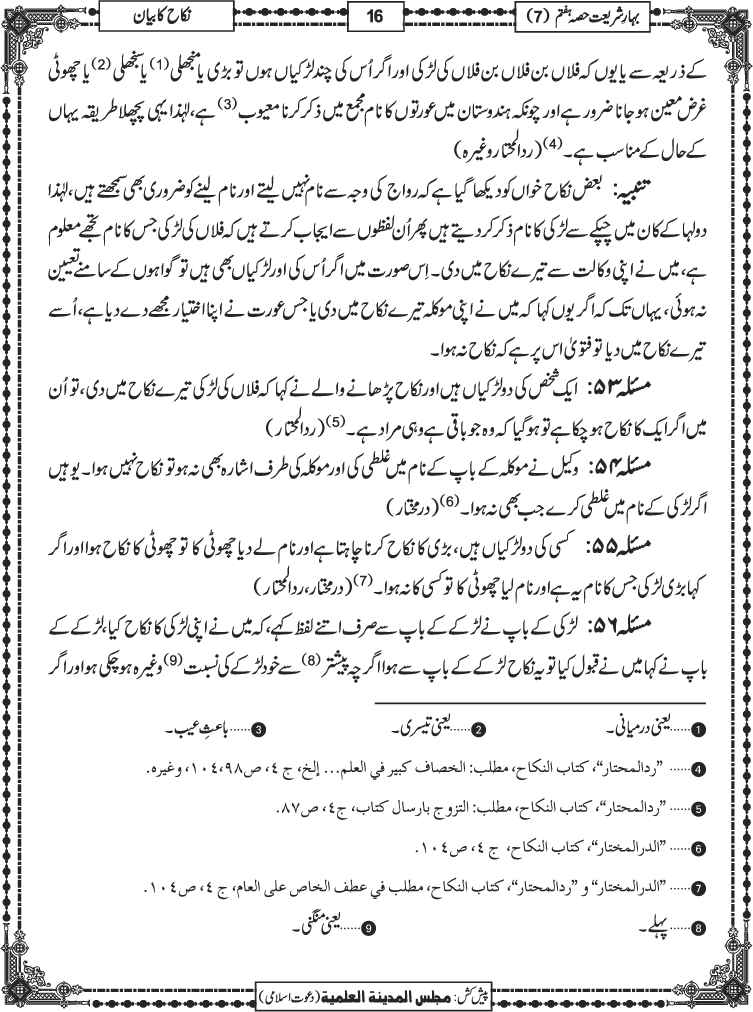 بہارِ شریعت حصہ ہفتم (7)
16
نکاح کا بیان
کے ذریعہ سے یا یوں کہ فلاں بن فلاں بن فلاں کی لڑکی اور اگر اُس کی چند لڑکیاں ہوں تو بڑی یا منجھلی(1) یا سنجھلی(2) یا چھوٹی
غرض معین ہو جانا ضرور ہے اور چونکہ ہندوستان میں عورتوں کا نام مجمع میں ذکر کرنا معیوب(3) ہے، لہٰذا یہی پچھلا طریقہ یہاں
کے حال کے مناسب ہے۔(4) (ردالمحتار وغیرہ)
تنبیہ: بعض نکاح خواں کو دیکھا گیا ہے کہ رواج کی وجہ سے نام نہیں لیتے اور نام لینے کو ضروری بھی سمجھتے ہیں، لہٰذا
دولہا کے کان میں چپکے سے لڑکی کا نام ذکر کر دیتے ہیں پھر اُن لفظوں سے ایجاب کرتے ہیں کہ فلاں کی لڑکی جس کا نام تجھے معلوم
ہے، میں نے اپنی وکالت سے تیرے نکاح میں دی۔ اِس صورت میں اگر اُس کی اور لڑکیاں بھی ہیں تو گواہوں کے سامنے تعیین
نہ ہوئی، یہاں تک کہ اگر یوں کہا کہ میں نے اپنی موکلہ تیرے نکاح میں دی یا جس عورت نے اپنا اختیار مجھے دے دیا ہے، اُسے
تیرے نکاح میں دیا تو فتویٰ اس پر ہے کہ نکاح نہ ہوا۔
مسئلہ ۵۳: ایک شخص کی دو لڑکیاں ہیں اور نکاح پڑھانے والے نے کہا کہ فلاں کی لڑکی تیرے نکاح میں دی، تو اُن
میں اگر ایک کا نکاح ہو چکا ہے تو ہو گیا کہ وہ جو باقی ہے وہی مراد ہے۔(5) (ردالمحتار)
مسئلہ ۵۴: وکیل نے موکلہ کے باپ کے نام میں غلطی کی اور موکلہ کی طرف اشارہ بھی نہ ہو تو نکاح نہیں ہوا۔ یوہیں
اگر لڑکی کے نام میں غلطی کرے جب بھی نہ ہوا۔(6) (درمختار)
مسئلہ ۵۵: کسی کی دو لڑکیاں ہیں، بڑی کا نکاح کرنا چاہتا ہے اور نام لے دیا چھوٹی کا تو چھوٹی کا نکاح ہوا اور اگر
کہا بڑی لڑکی جس کا نام یہ ہے اور نام لیا چھوٹی کا تو کسی کا نہ ہوا۔(7) (درمختار، ردالمحتار)
مسئلہ ۵۶: لڑکی کے باپ نے لڑکے کے باپ سے صرف اتنے لفظ کہے، کہ میں نے اپنی لڑکی کا نکاح کیا، لڑکے کے
باپ نے کہا میں نے قبول کیا تو یہ نکاح لڑکے کے باپ سے ہوا اگرچہ پیشتر(8) سے خود لڑکے کی نسبت(9) وغیرہ ہو چکی ہو اور اگر
1 ...... یعنی درمیانی۔ 2 ...... یعنی تیسری۔ 3 ...... باعثِ عیب۔
4 ...... ”ردالمحتار“، کتاب النکاح، مطلب: الخصاف کبیر في العلم... إلخ، ج ٤، ص٩٨،١٠٤، وغیرہ.
5 ...... ”ردالمحتار“، کتاب النکاح، مطلب: التزوج بارسال کتاب، ج٤، ص٨٧.
6 ...... ”الدرالمختار“، کتاب النکاح، ج ٤، ص١٠٤.
7 ...... ”الدرالمختار“ و ”ردالمحتار“، کتاب النکاح، مطلب في عطف الخاص علی العام، ج ٤، ص١٠٤.
8 ...... پہلے۔ 9 ...... یعنی منگنی۔
پیش کش: مجلس المدینة العلمیة (دعوت اسلامی)